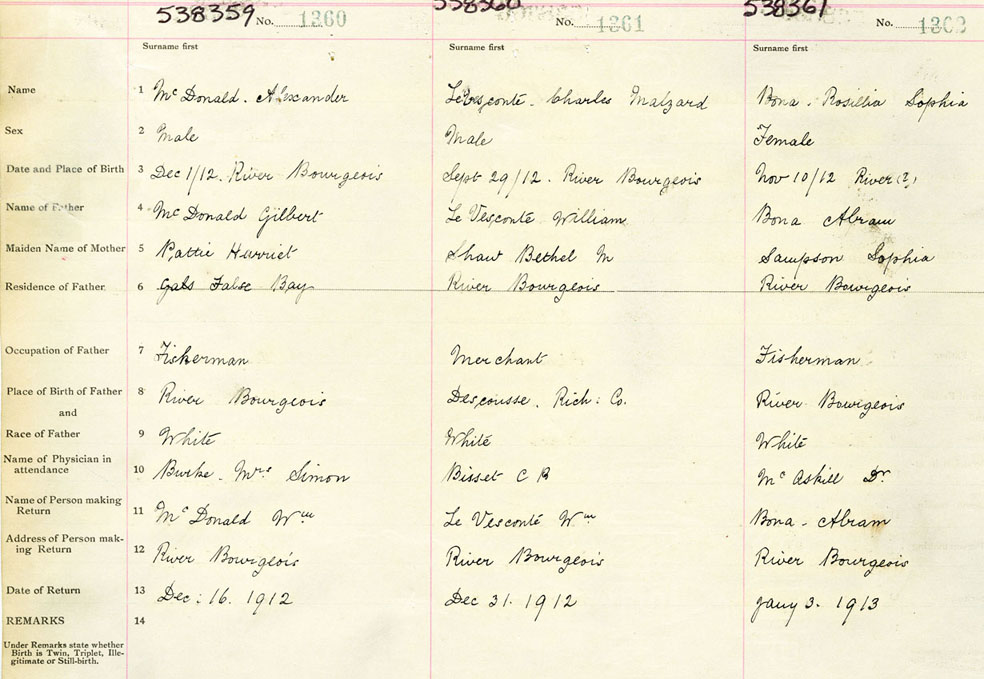 538359 No. 1360 538360 No. 1361 538361 No. 1362
Surname first Surname first Surname first
Name 1 Mc Donald. Alexander LeVesconte. Charles Malzard Bona. Rosillia Sophia
Sex 2 Male Male Female
Date and Place of Birth 3 Dec 1/12. River Bourgeois Sept 29/12. River Bourgeois Nov 10/12 River (?)
Name of Father 4 Mc Donald Gilbert Le Vesconte William Bona Abram
Maiden Name of Mother 5 Pattie Harriet Shaw Bethel M Sampson Sophia
Residence of Father 6 False Bay River Bourgeois River Bourgeois
Occupation of Father 7 Fisherman Merchant Fisherman
Place of Birth of Father 8 River Bourgeois Descousse. Rich: Co. River Bourgeois
and
Race of Father 9 White White White
Name of Physician in
attendance 10 Burke. Mrs Simon Bisset C R Mc Askill Dr
Name of Person making
Return 11 Mc Donald Wm Le Vesconte Wm Bona - Abram
Address of Person mak-
ing Return 12 River Bourgeois River Bourgeois River Bourgeois
Date of Return 13 Dec: 16. 1912 Dec 31. 1912 Jany 3. 1913
REMARKS 14
Under Remarks state whether
Birth is Twin, Triplet, Ille-
gitimate or Still-birth.